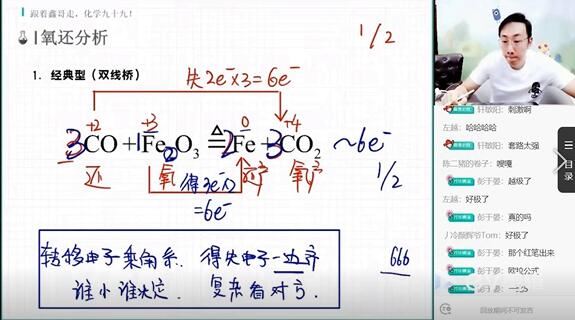 跟着鑫哥走，化学九十九！
氧还分析
1/2
1. 经典型（双线桥）
失2e⁻×3=6e⁻
+2 +3 0 +4
3CO+1Fe₂O₃≜2Fe+3CO₂ ~6e⁻
还 氧 得3e⁻×2 还产 氧产 1/2
=6e⁻
转移电子乘角系. 得失电子一边齐
谁小谁决定. 复杂看对方.
666
轩敏阳: 刺激啊
左越: 哈哈哈哈
轩敏阳: 套路太强
陈二猪的卷子: 嘎嘎
彭于晏: 越级了
左越: 好极了
彭于晏: 真的吗
好极了
彭于晏: 那个红笔出来
彭于晏: 欧拉公式
目录
回放期间不可发言